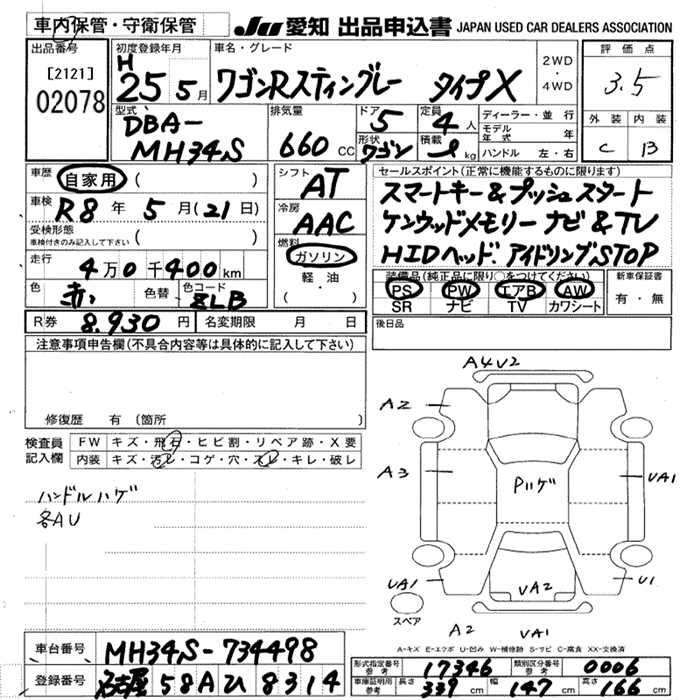 車内保管・守衛保管 JU 愛知 出品申込書 JAPAN USED CAR DEALERS ASSOCIATION
出品番号 [2121] 02078
初度登録年月 H 25 5月
車名・グレード ワゴンRスティングレー タイプX
2WD ・ 4WD
評価点 3.5
外装 C 内装 B
型式 DBA- MH34S
排気量 660 cc
ドア 5 形状 ワゴン
定員 4人 積載 kg
ディーラー・並行
モデル年式 年
ハンドル 左・右
車歴 自家用 ( )
車検 R8年 5月(21日)
受検形態 車検付きのみ記入して下さい ( )
走行 4万0千400km
色 赤 色替 色コード ZLB
R券 8.930円 名変期限 月 日
シフト AT
冷房 AAC
燃料 ガソリン 軽・油 ( ・ )
セールスポイント(正常に機能するものに限ります)
スマートキー&プッシュスタート
ケンウッドメモリーナビ&TV
HIDヘッド. アイドリングSTOP
装備品(純正品に限り○をつけてください)
PS PW エアB AW
SR ナビ TV カワシート
新車保証書 有・無
後日品
注意事項申告欄(不具合内容等は具体的に記入して下さい)
修復歴 有 (箇所 )
検査員記入欄
FW キズ・飛石・ヒビ割・リペア跡・X要
内装 キズ・汚レ・コゲ・穴・スレ・キレ・破レ
ハンドルハゲ
各AU
A4V2
A2
A3
Pハゲ
UA1
UA1
UA2
U1
スペア
A2 UA1
A-キズ E-エクボ U-凹み W-補修跡 S-サビ C-腐食 XX-交換済
車台番号 MH34S-734498
登録番号 名古屋 58A ひ 8314
形式指定番号 参考 17346 類別区分番号 参考 0006
車庫証明用 参考 長さ 339cm 幅 147cm 高さ 166cm